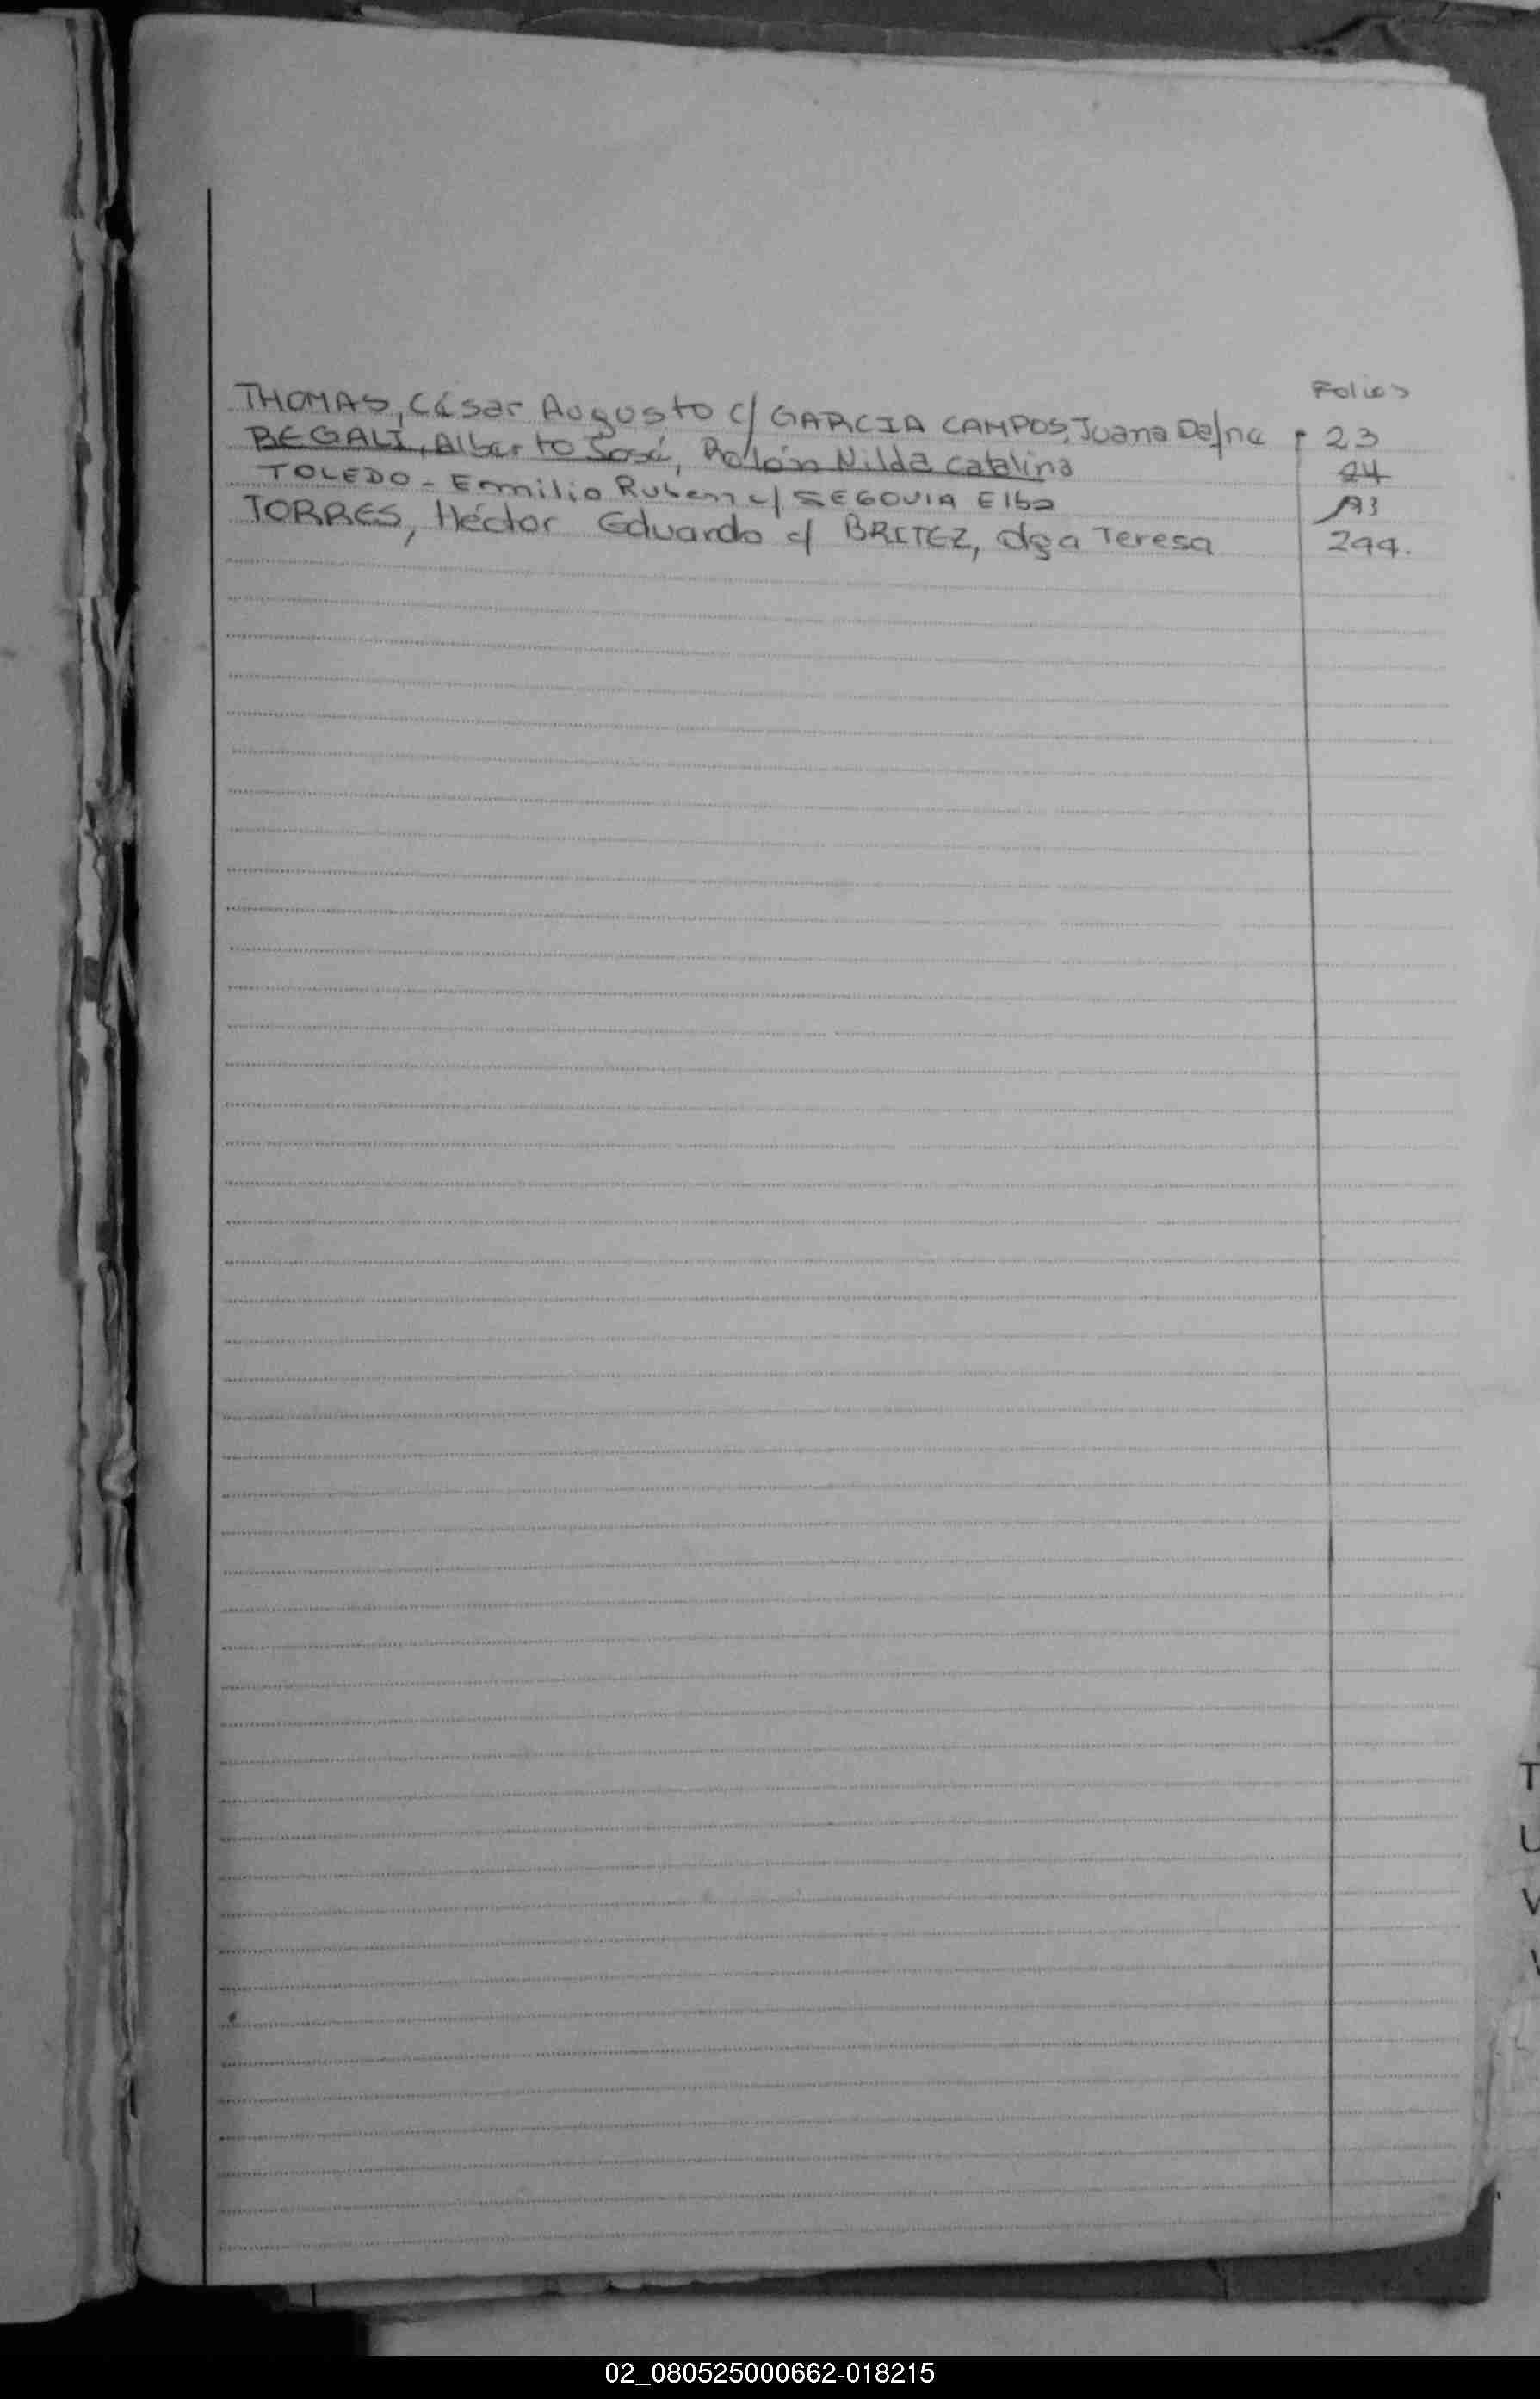 Folios
THOMAS, César Augusto c/ GARCIA CAMPOS, Juana Dafne 23
BEGALI, Alberto José, Rolón Nilda Catalina 24
TOLEDO - Emilio Ruben c/ SEGOVIA Elba
TORRES, Héctor Eduardo c/ BRITEZ, Olga Teresa 299.
T
U
V
02_080525000662-018215